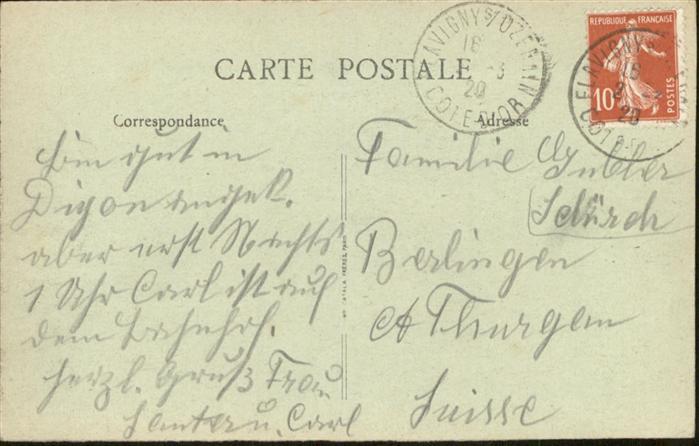 CARTE POSTALE
Correspondance
Adresse
FLAVIGNY S/ OZERAIN
16
20
COTE-D'OR
REPUBLIQUE FRANÇAISE
10
POSTES
FLAVIGNY S/
16
20
COTE-D'OR
bin gut in
Digon angek.
aber erst Nachts
1 Uhr Carl ist auf
dem Bahnhof.
herzl. Gruß Frau
u. Carl
Familie Gubler
Schürch
Berlingen
Ct Thurgau
Suisse
FRÈRES, PARIS